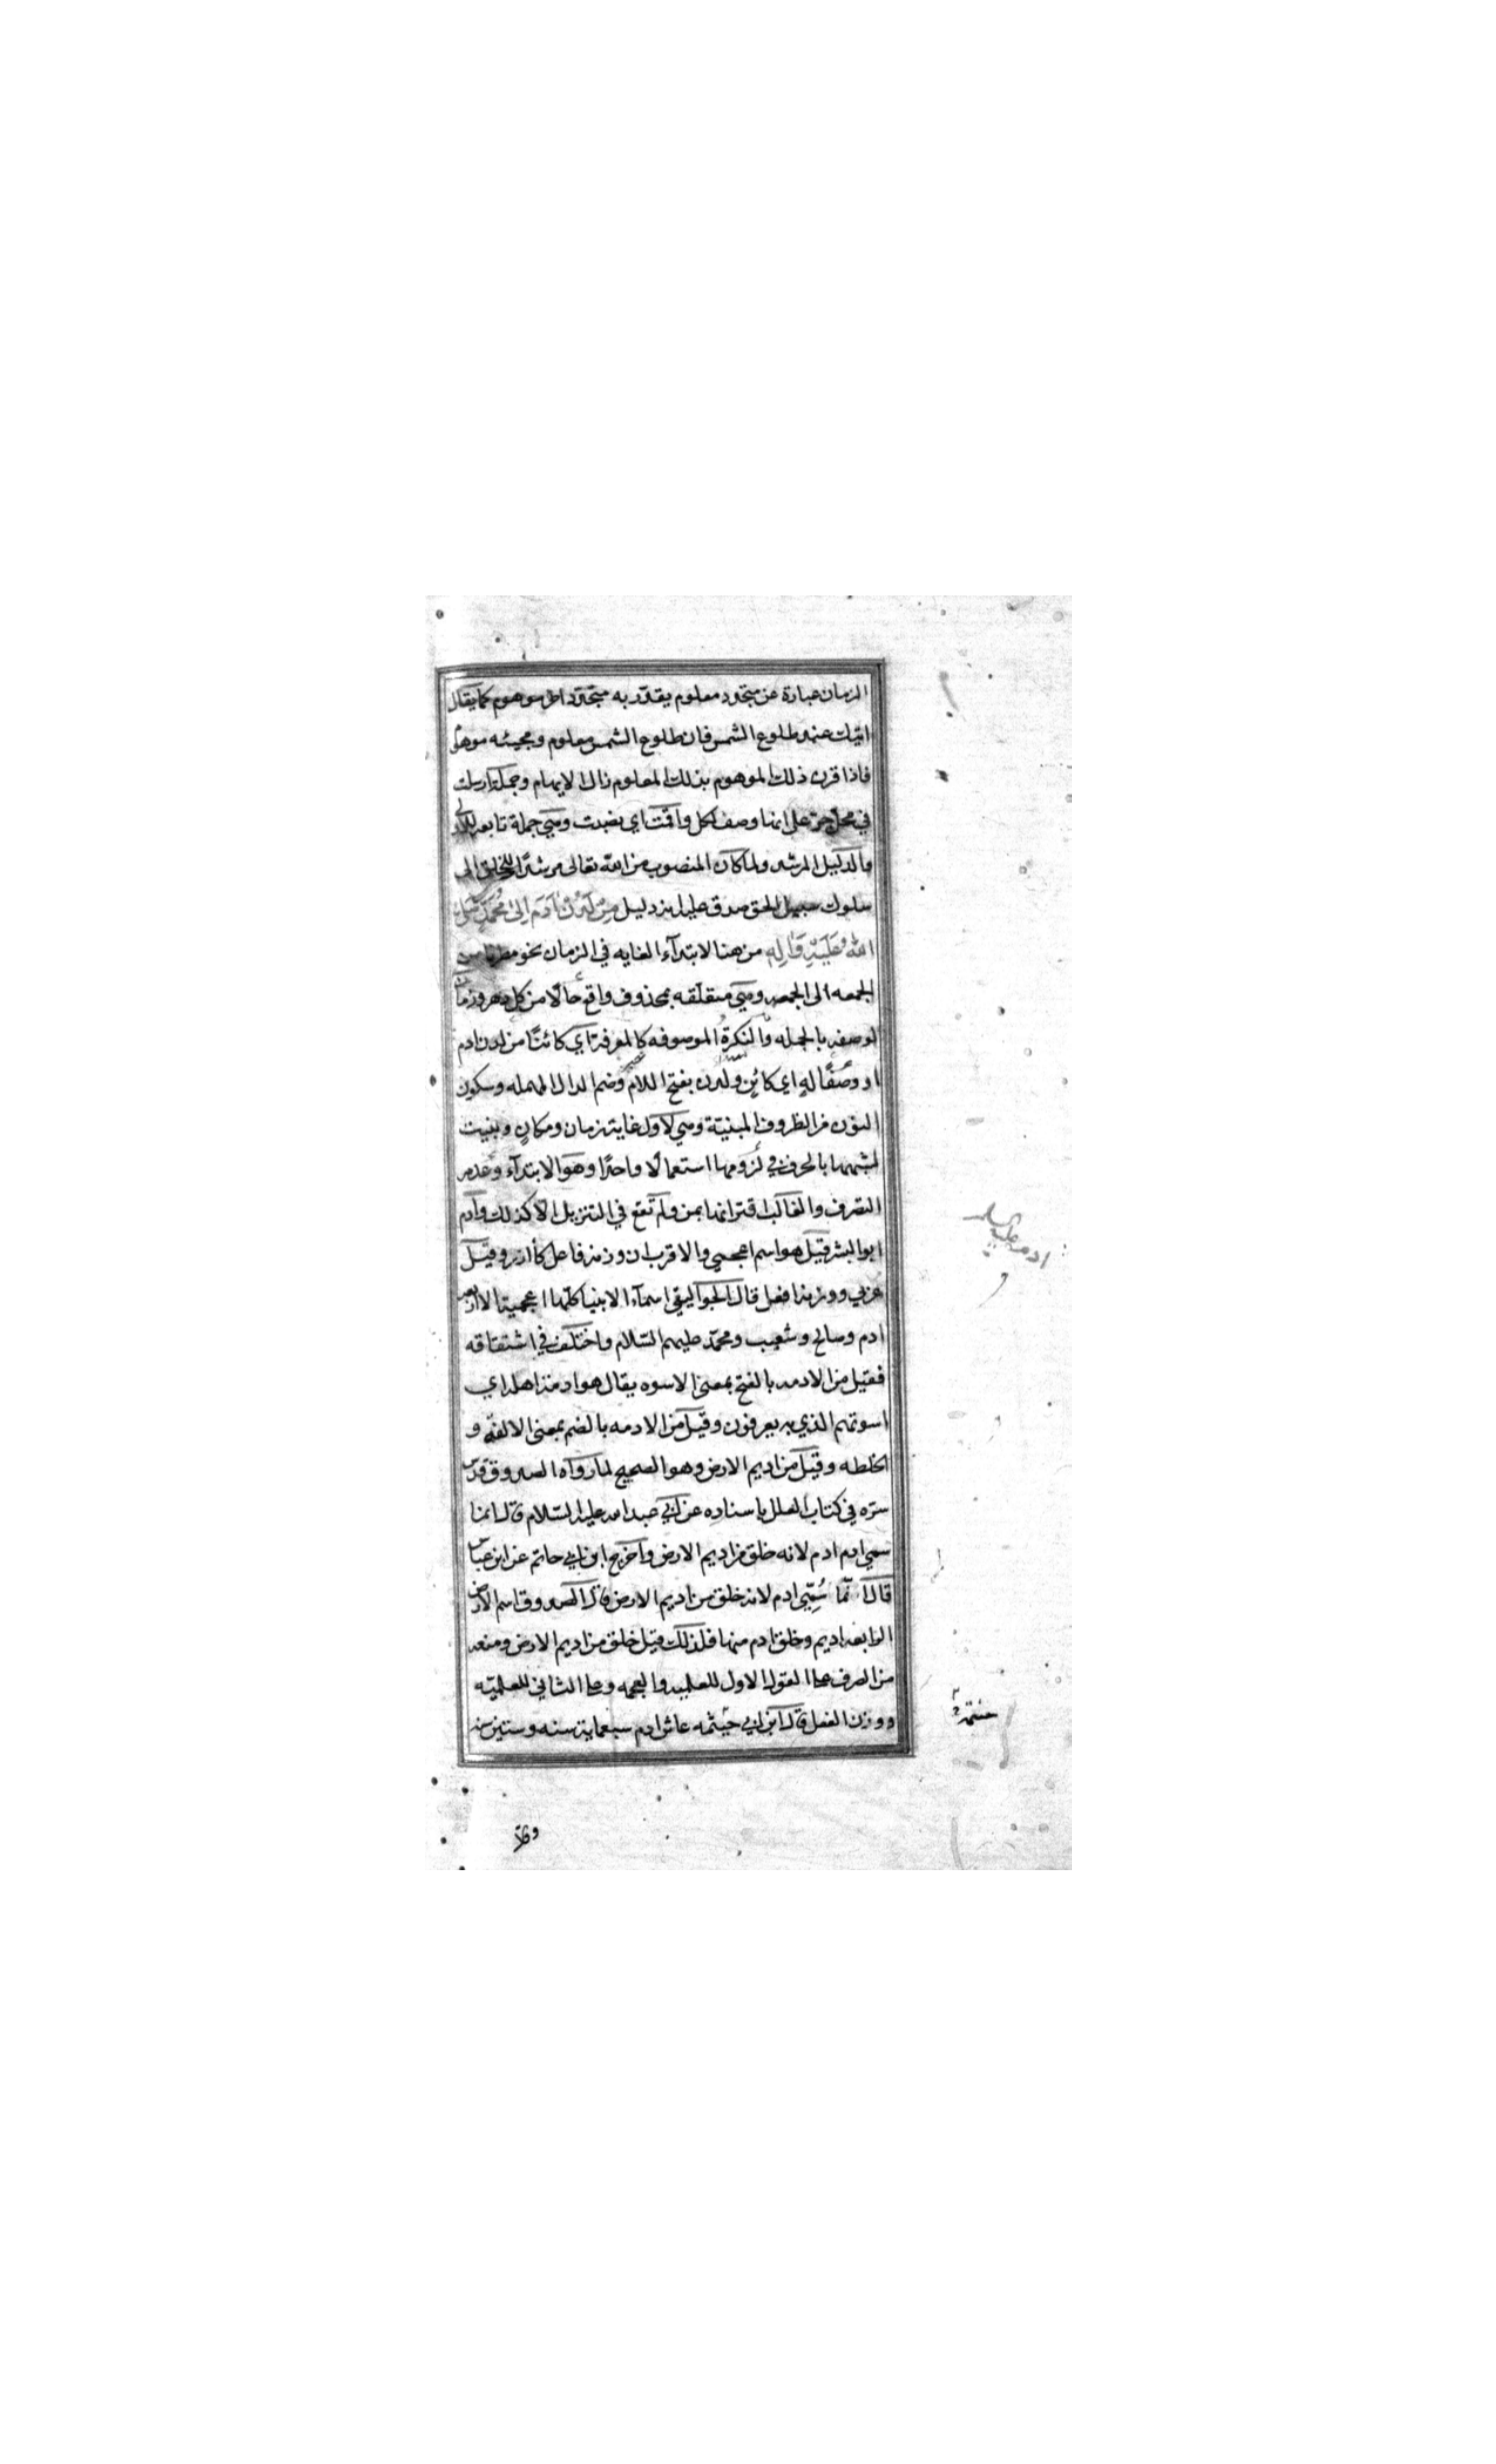 الزمان عبارة عن متجدد معلوم يقدر به متجدد اخر موهوم كما يقال
اتيك عند طلوع الشمس فان طلوع الشمس معلوم ومجيئه موهوم
فاذا قرن ذلك الموهوم بذلك المعلوم زال الايهام وجملة ارسلت
في محل جر على انها وصف لكل واقمت اي نصبت وهي جملة تابعه للاولى
والدليل المرشد ولما كان المنصوب من الله تعالى مرشدا للخلق الى
سلوك سبيل الحق صدق عليه انه دليل مِن لَدُن اٰدَمَ اِلىٰ مُحَمَّدٍ صَلَّى
اللهُ عَلَيْهِ وَاٰلِه من هنا لابتدآء الغايه في الزمان نحو مطرنا من
الجمعه الى الجمعه وهي متعلقه بمحذوف واقع حالا من كل دهر وزمان
لوصفه بالجمله والنكرة الموصوفه كالمعرفة اي كائنًا من لدن ادم
او وصفًا له اي كائنٍ ولدن بفتح اللام وضم الدال المهمله وسكون
النون من الظروف المبنية وهي لاول غاية زمان ومكان وبنيت
لشبهها بالحرف في لزومها استعمالا واحدًا وهو الابتدآء وعدم
التصرف والغالب اقترانها بمن ولم تقع في التنزيل الا كذلك وآدم
ابو البشر قيل هو اسم اعجمي والاقرب ان وزنه فاعل كأازر وقيل
عربي ووزنه افعل قال الجواليقي اسمآء الانبيا كلها اعجمية الا اربعه
ادم وصالح وشعيب ومحمد عليهم السّلام واختلف في اشتقاقه
فقيل من الادمه بالفتح بمعنى الاسوه يقال هو ادمة اهله اي
اسوتهم الذي به يعرفون وقيل من الادمه بالضم بمعنى الالفة و
الخلطه وقيل من اديم الارض وهو الصحيح لما رواه الصدوق قدس
سره في كتاب العلل باسناده عن ابي عبد الله عليه السّلام قال انما
سمي ادم ادم لانه خلق من اديم الارض واخرج ابن ابي حاتم عن ابن عباس
قال انّما سُمِّي ادم لانه خلق من اديم الارض قال الصدوق اسم الارض
الرابعه اديم وخلق ادم منها فلذلك قيل خلق من اديم الارض ومنعه
من الصرف على القول الاول للعلميه والعجمه وعلى الثاني للعلميّه
ووزن الفعل قال ابن ابي خيثمه عاش ادم سبعماية سنه وستين سنه
ادم عليه السلام